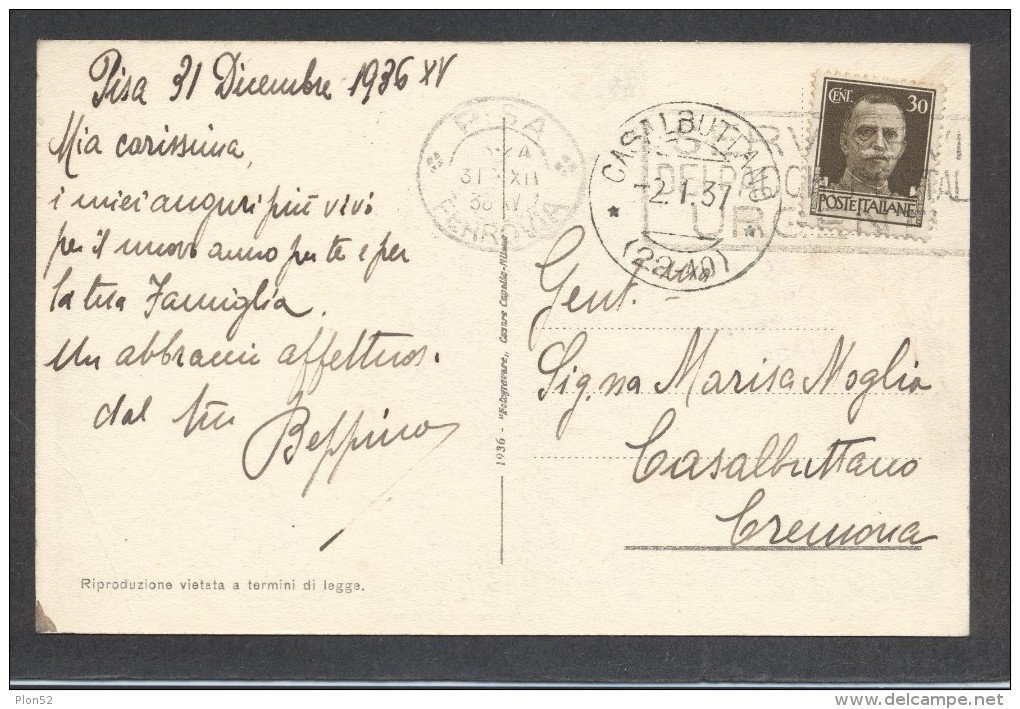 Pisa 31 Dicembre 1936 XV
Mia carissima,
i miei auguri più vivi
per il nuovo anno per te e per
la tua Famiglia.
Un abbraccio affettuos.
dal tuo
Beppino
Riproduzione vietata a termini di legge.
1936 - "Fotogravure,, Cesare Capello-Milano
PISA
31 XII
36 XV
FERROVIA
CASALBUTTANO
-2.1.37
URGENTI
CENT. 30
POSTE ITALIANE
Gent.
Sig.na Marisa Moglia
Casalbuttano
Cremona
Plon52
www.delcampe.net